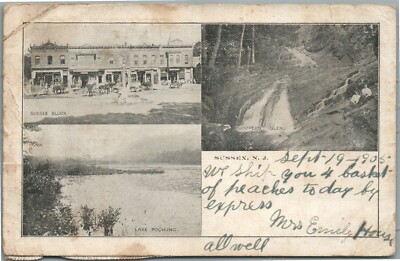 SUSSEX BLOCK.
GLEN.
SUSSEX, N. J.
LAKE POCHUNG.
Sept-19-1905
We Ship you 4 basket
of peaches to day by
express
Mrs Emily House
all well